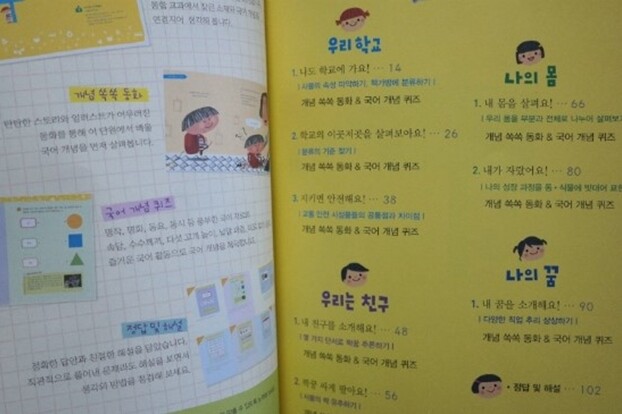 통합 교과에서 찾은 소재와 국어 개념을
연결지어 생각해 봅니다.
개념 쏙쏙 동화
탄탄한 스토리와 일러스트가 어우러진
동화를 통해 이 단원에서 배울
국어 개념을 먼저 살펴봅니다.
국어 개념 퀴즈
명작, 명화, 동요, 동시 등 풍부한 국어 자료와
속담, 수수께끼, 다섯 고개 놀이, 낱말 퍼즐,
즐거운 국어 활동으로 국어 개념을
정답 및 해설
정확한 답안과 친절한 해설을 담았습니다.
직관적으로 풀어낸 문제라도 해설을 보면서
생각의 방법을 점검해 보세요.
우리 학교
1. 나도 학교에 가요! … 14
| 사물의 속성 파악하기, 책가방에 분류하기 |
개념 쏙쏙 동화 & 국어 개념 퀴즈
2. 학교의 이곳저곳을 살펴보아요! … 26
| 분류의 기준 찾기 |
개념 쏙쏙 동화 & 국어 개념 퀴즈
3. 지키면 안전해요! … 38
| 교통 안전 시설물들의 공통점과 차이점 |
개념 쏙쏙 동화 & 국어 개념 퀴즈
우리는 친구
1. 내 친구를 소개해요! … 48
| 몇 가지 단서로 짝꿍 추론하기 |
개념 쏙쏙 동화 & 국어 개념 퀴즈
2. 짝꿍 … 56
개념 쏙쏙 동화 & 국어 개념 퀴즈
나의 몸
1. 내 몸을 살펴요! … 66
| 우리 몸을 부분과 전체로 나누어 살펴보기
개념 쏙쏙 동화 & 국어 개념 퀴즈
2. 내가 자랐어요! … 80
| 나의 성장 과정을 동·식물에 빗대어
개념 쏙쏙 동화 & 국어 개념 퀴즈
나의 꿈
1. 내 꿈을 소개해요! … 90
| 다양한 직업 추리 상상하기 |
개념 쏙쏙 동화 & 국어 개념 퀴즈
• 정답 및 해설 … 102